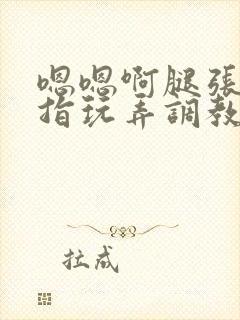 嗯嗯啊腿张
指玩弄調教
拉成